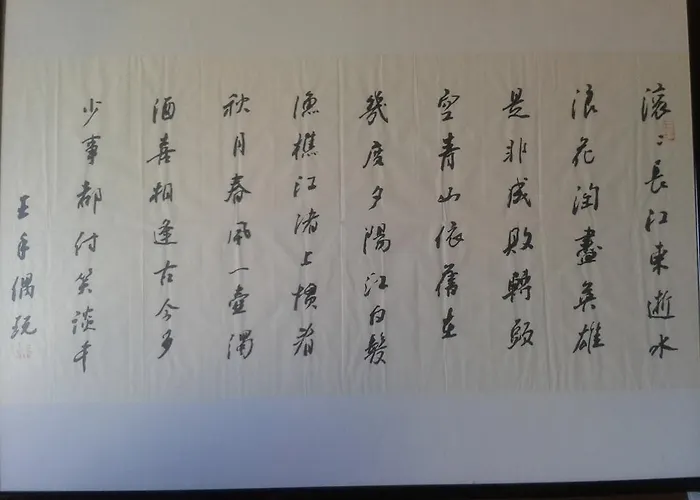 滚〻長江東逝水
浪花淘盡英雄
是非成敗轉頭
空青山依舊在
幾度夕陽江白髮
漁樵江渚上慣看
秋月春風一壺濁
酒喜相逢古今多
少事都付笑談中
王 偶